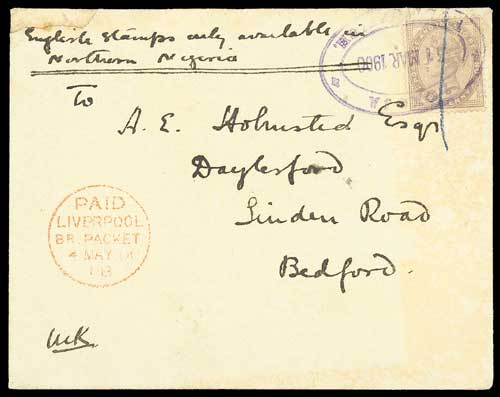 English Stamps only available in
Northern Nigeria
31 MAR 1900
To
A. E. Holmsted Esqr
Daylesford
Linden Road
Bedford.
PAID
LIVERPOOL
BR. PACKET
4 MAY 01
UK.